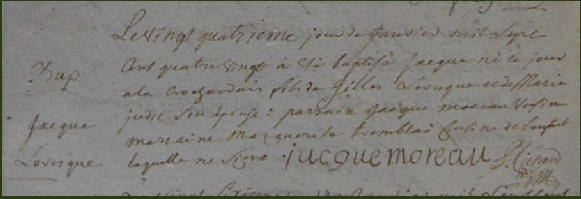 Le vingt quatrieme jour de Janvier mil sept
Cent quatre vingt a été baptisé Jacque né ce jour
Bap
a la fils de Gilles Levesque et de Marie
judic son Epouse : parrain Jacque moreau voisin
Jacque
marraine Marguerite tremblai Cusine de l'enfant
Levesque
laquelle ne signe jacquemoreau